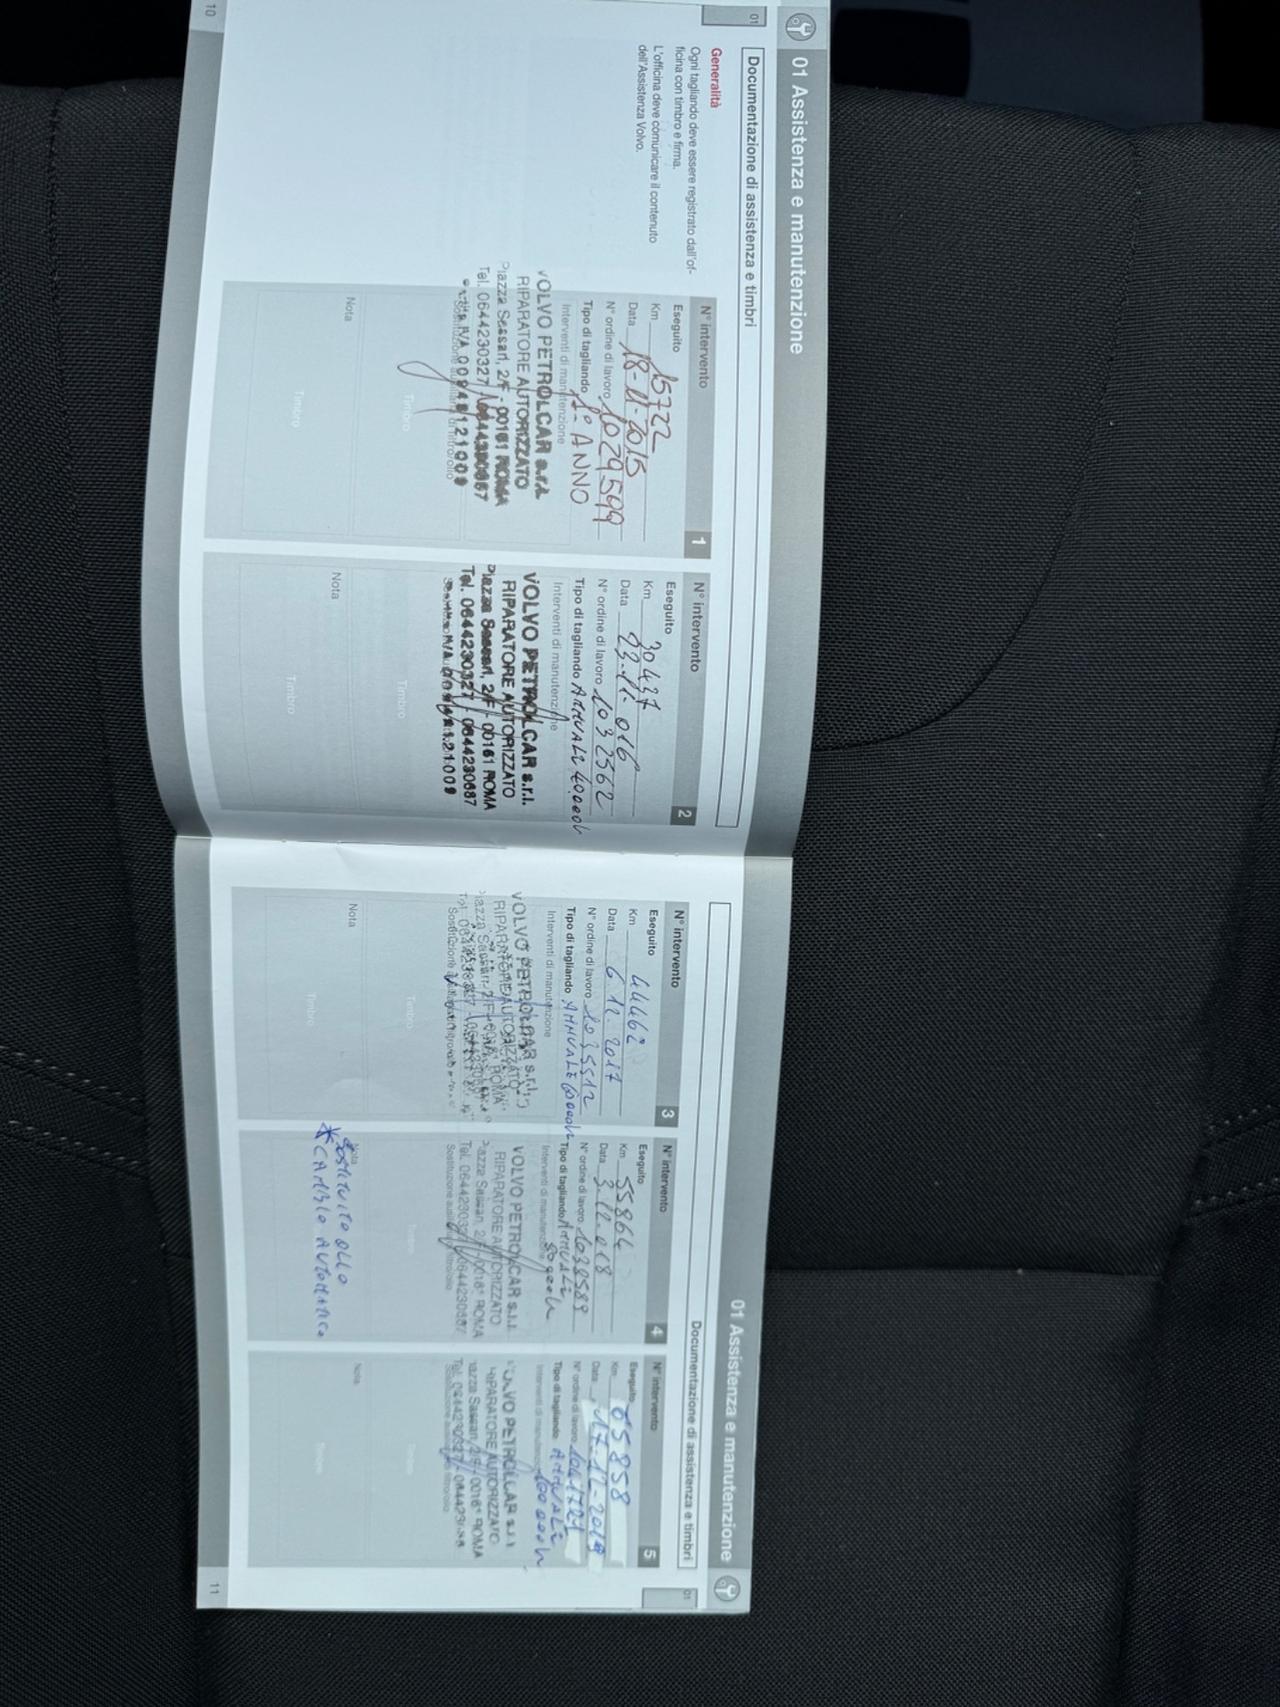 01 Assistenza e manutenzione
01
Documentazione di assistenza e timbri
Generalità
Ogni tagliando deve essere registrato dall'of-
ficina con timbro e firma.
L'officina deve comunicare il contenuto
dell'Assistenza Volvo.
N° intervento 1
Eseguito
Km 15722
Data 18-11-2015
N° ordine di lavoro 1029599
Tipo di tagliando 1° ANNO
Interventi di manutenzione
VOLVO PETROLCAR s.r.l.
RIPARATORE AUTORIZZATO
Piazza Sassari, 2/F - 00161 ROMA
Tel. 0644230327
Timbro
Nota
Timbro
10
N° intervento 2
Eseguito
Km 30437
Data 23.11.016
N° ordine di lavoro 1032562
Tipo di tagliando ANNUALE 40.000
Interventi di manutenzione
VOLVO PETROLCAR s.r.l.
RIPARATORE AUTORIZZATO
Piazza Sassari, 2/F - 00161 ROMA
Tel. 0644230327 - 0644230687
Timbro
Nota
Timbro
01 Assistenza e manutenzione
01
Documentazione di assistenza e timbri
N° intervento 3
Eseguito
Km 44462
Data 6.12.2017
N° ordine di lavoro 1035512
Tipo di tagliando ANNUALE 60000
Interventi di manutenzione
VOLVO PETROLCAR s.r.l.
RIPARATORE AUTORIZZATO
Piazza Sassari, 2/F ROMA
Timbro
Nota
Timbro
N° intervento 4
Eseguito
Km 55864
Data 3.12.018
N° ordine di lavoro 1038589
Tipo di tagliando ANNUALE
Interventi di manutenzione 80000
VOLVO PETROLCAR s.r.l.
RIPARATORE AUTORIZZATO
Piazza Sassari, 2/F - 00161 ROMA
Tel. 0644230327 0644230687
Timbro
Nota
SOSTITUITO OLIO
* CAMBIO AUTOMATICO
Timbro
N° intervento 5
Eseguito
Km 65858
Data 17-12-2019
N° ordine di lavoro 1041721
Tipo di tagliando ANNUALE
Interventi di manutenzione 100000
VOLVO PETROLCAR s.r.l.
RIPARATORE AUTORIZZATO
Piazza Sassari, 2/F - 00161 ROMA
Tel. 0644230327
Timbro
Nota
Timbro
11